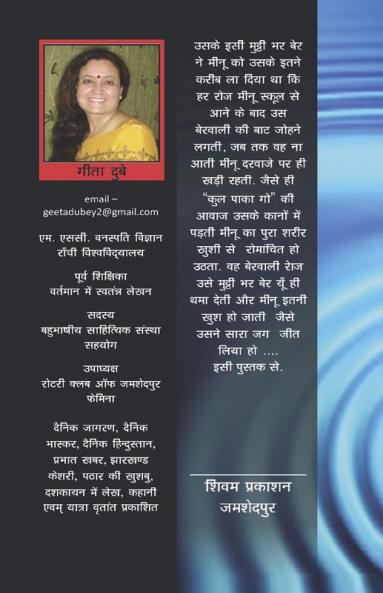 गीता दुबे
email –
geetadubey2@gmail.com
एम. एससी. वनस्पति विज्ञान
राँची विश्वविद्यालय
पूर्व शिक्षिका
वर्तमान में स्वतंत्र लेखन
सदस्य
बहुभाषीय साहित्यिक संस्था
सहयोग
उपाध्यक्ष
रोटरी क्लब ऑफ जमशेदपुर
फेमिना
दैनिक जागरण, दैनिक
भास्कर, दैनिक हिन्दुस्तान,
प्रभात खबर, झारखण्ड
केशरी, पठार की खुशबु,
दशकायन में लेख, कहानी
एवम् यात्रा वृतांत प्रकाशित
उसके इसी मुट्ठी भर बेर
ने मीनू को उसके इतने
करीब ला दिया था कि
हर रोज मीनू स्कूल से
आने के बाद उस
बेरवाली की बाट जोहने
लगती, जब तक वह ना
आती मीनू दरवाजे पर ही
खड़ी रहती. जैसे ही
“कुल पाका गो” की
आवाज उसके कानों में
पड़ती मीनू का पुरा शरीर
खुशी से रोमांचित हो
उठता. वह बेरवाली रोज
उसे मुट्ठी भर बेर यूँ ही
थमा देती और मीनू इतनी
खुश हो जाती जैसे
उसने सारा जग जीत
लिया हो ....
इसी पुस्तक से.
शिवम प्रकाशन
जमशेदपुर